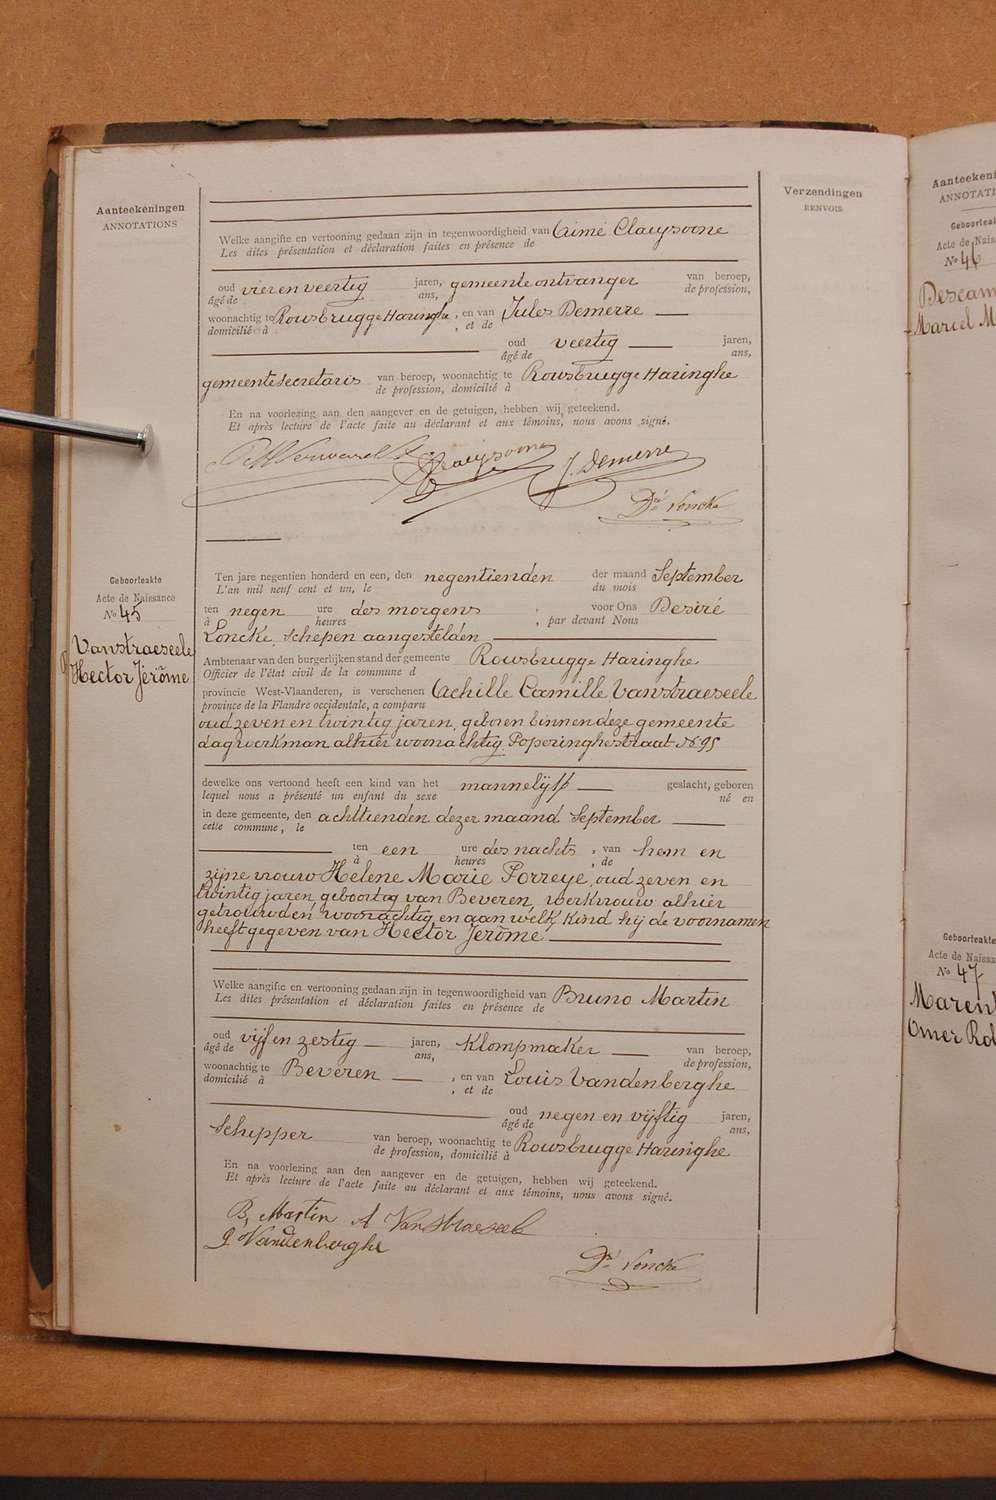 Aanteekeningen
ANNOTATIONS
Verzendingen
RENVOIS
Welke aangifte en vertooning gedaan zijn in tegenwoordigheid van Aimé Claeysoone
Les dites présentation et déclaration faites en présence de
oud vier en veertig jaren, gemeenteontvanger van beroep,
âgé de ans, de profession,
woonachtig te Rousbrugge Haringhe, en van Jules Demerre
domicilié à , et de
oud veertig jaren,
âgé de ans,
gemeentesecretaris van beroep, woonachtig te Rousbrugge Haringhe
de profession, domicilié à
En na voorlezing aan den aangever en de getuigen, hebben wij geteekend.
Et après lecture de l'acte faite au déclarant et aux témoins, nous avons signé.
Claeysoone J. Demerre
Dré Loncke
Geboorteakte
Acte de Naissance
No 45
Vanstraeseele
Hector Jérôme
Ten jare negentien honderd en een, den negentienden der maand September
L'an mil neuf cent et un, le du mois
ten negen ure des morgens , voor Ons Desiré
à heures , par devant Nous
Loncke, schepen aangestelden
Ambtenaar van den burgerlijken stand der gemeente Rousbrugge Haringhe
Officier de l'état civil de la commune d
provincie West-Vlaanderen, is verschenen Achille Camille Vanstraeseele
province de la Flandre occidentale, a comparu
oud zeven en twintig jaren, geboren binnen deze gemeente
dagwerkman alhier woonachtig Poperinghestraat No 95
dewelke ons vertoond heeft een kind van het mannelijk geslacht, geboren
lequel nous a présenté un enfant du sexe né en
in deze gemeente, den achttienden dezer maand September
cette commune, le
ten een ure des nachts , van hem en
à heures , de
zijne vrouw Helene Marie Porreye, oud zeven en
twintig jaren, geboortig van Beveren, werkvrouw alhier
getrouwd en woonachtig, en aan welk kind hij de voornamen
heeft gegeven van Hector Jerôme
Welke aangifte en vertooning gedaan zijn in tegenwoordigheid van Bruno Martin
Les dites présentation et déclaration faites en présence de
oud vijf en zestig jaren, Klompmaker van beroep,
âgé de ans, de profession,
woonachtig te Beveren , en van Louis Vandenberghe
domicilié à , et de
oud negen en vijftig jaren,
âgé de ans,
Schipper van beroep, woonachtig te Rousbrugge Haringhe
de profession, domicilié à
En na voorlezing aan den aangever en de getuigen, hebben wij geteekend.
Et après lecture de l'acte faite au déclarant et aux témoins, nous avons signé.
B, Martin A Vanstraeseele
L Vandenberghe
Dré Loncke
Aanteekeni
ANNOTATI
Geboorteakt
Acte de Naiss
No 46
Descam
Marcel M
Geboorteakte
Acte de Naissa
No 47
Maren
Omer Rob